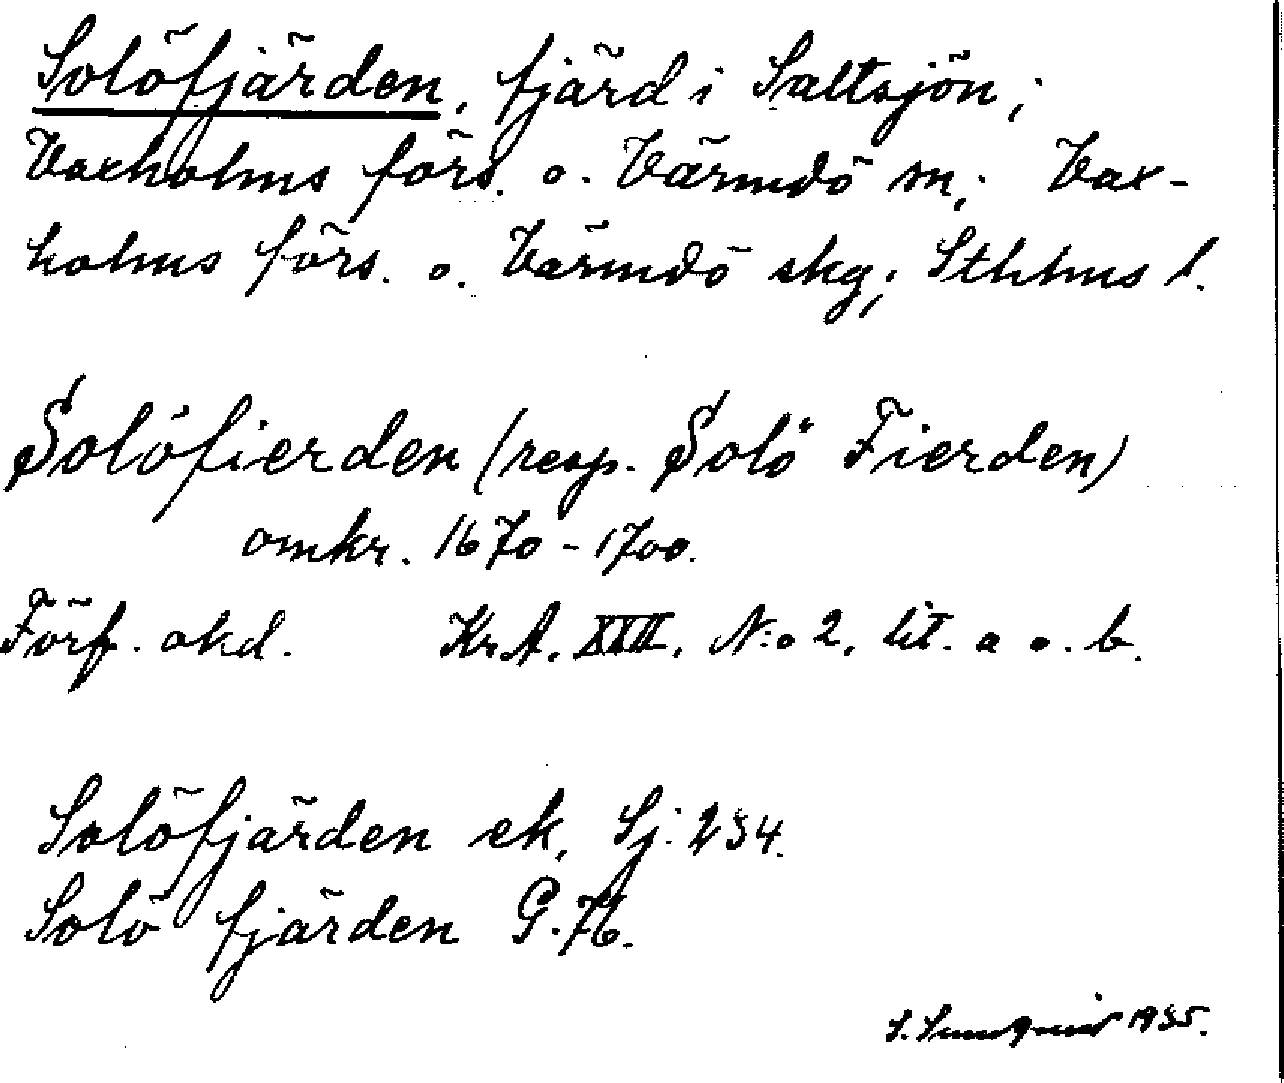 Solöfjärden, fjärd i Saltsjön;
Vaxholms förs. o. Värmdö sn; Vax-
holms förs. o. Värmdö skg; Sthlms l.
Solöfierden (resp. Solö Fierden)
omkr. 1670-1700.
Förf. okd. KrA. XIII. N:o 2. lit. a o. b.
Solöfjärden ek, Sj. 234.
Solö fjärden G. 76.
1935.